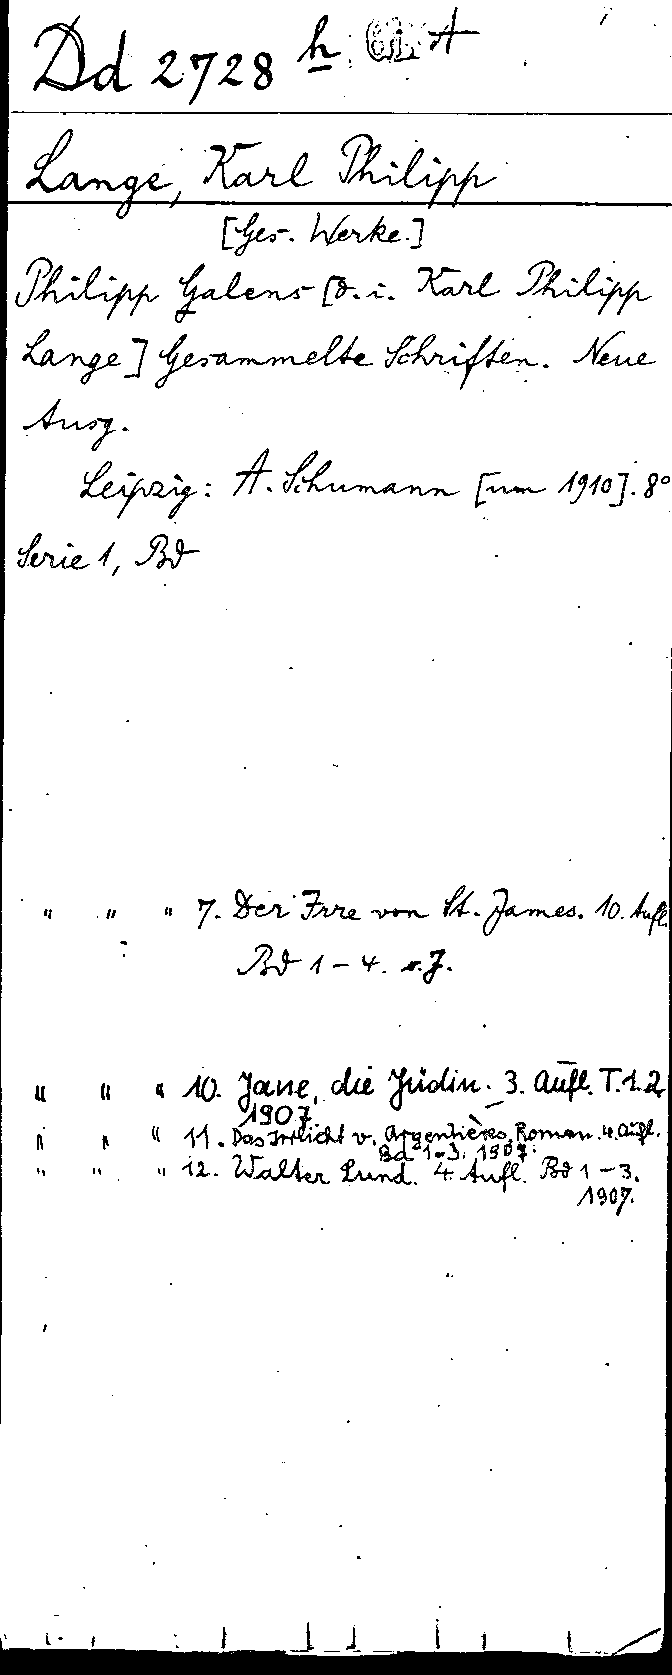 Dd 2728 h A
Lange, Karl Philipp
[Ges. Werke.]
Philipp Galens [d. i. Karl Philipp
Lange] Gesammelte Schriften. Neue
Ausg.
Leipzig: A. Schumann [um 1910]. 8°
Serie 1, Bd
" " " 7. Der Irre von St. James. 10. Aufl.
Bd 1-4. o.J.
" " " 10. Jane, die Jüdin. 3. Aufl. T. 1.2
1907
" " " 11. Das Irrlicht v. Argentières. Roman. 4. Aufl.
Bd 1-3. 1907.
" " " 12. Walter Lund. 4. Aufl. Bd 1-3.
1907.